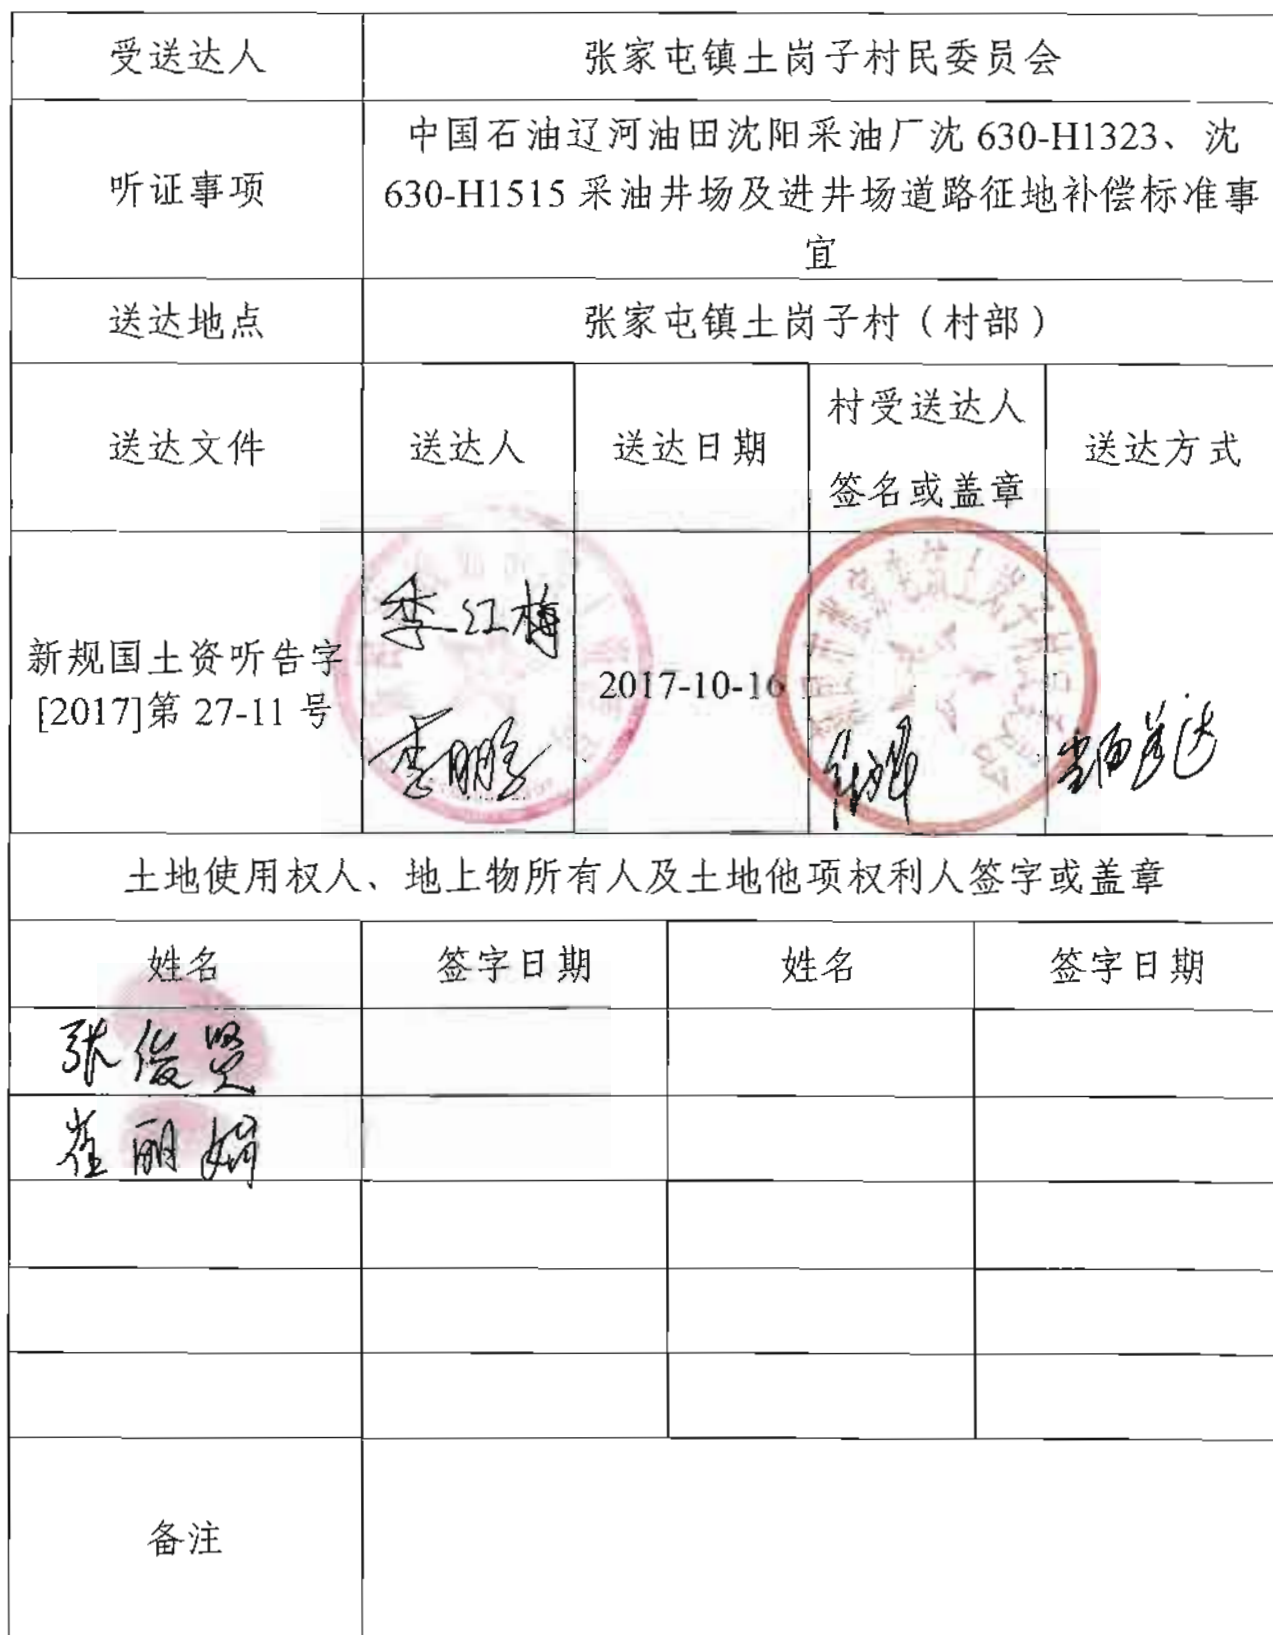 受送达人
张家屯镇土岗子村民委员会
听证事项
中国石油辽河油田沈阳采油厂沈 630-H1323、沈
630-H1515 采油井场及进井场道路征地补偿标准事
宜
送达地点
张家屯镇土岗子村（村部）
送达文件
送达人
送达日期
村受送达人
签名或盖章
送达方式
新规国土资听告字
[2017]第 27-11 号
季红梅
李鹏
2017-10-16
当面送达
土地使用权人、地上物所有人及土地他项权利人签字或盖章
姓名
签字日期
姓名
签字日期
张俊贤
崔丽娟
备注